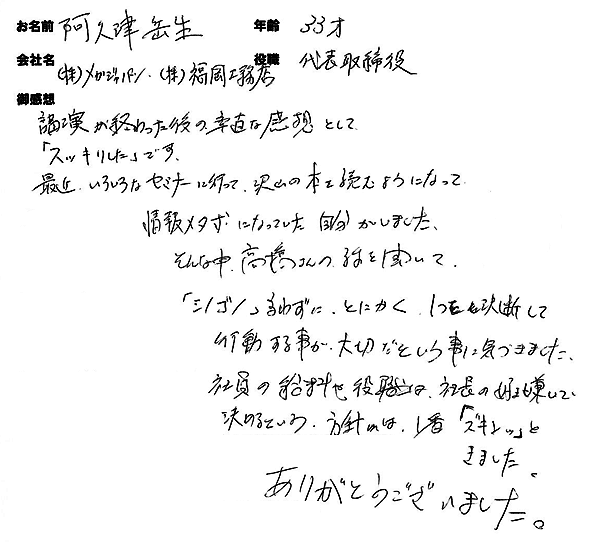 お名前 阿久津岳生 年齢 33才
会社名 (株)メガジャパン・(株)福岡工務店 役職 代表取締役
御感想
講演が終わった後の率直な感想として
「スッキリした」です、
最近、いろいろなセミナーに行って、沢山の本を読むようになって
情報メタボになっていた自分がいました、
そんな中、高橋さんの話を聞いて、
「シノゴノ」言わずに、とにかく、1つを決断して
行動する事が、大切だという事に気づきました、
社員の給料や役職は、社長の好き嫌いで
決めるという、方針は、1番「ズキッ」と
きました。
ありがとうございました。